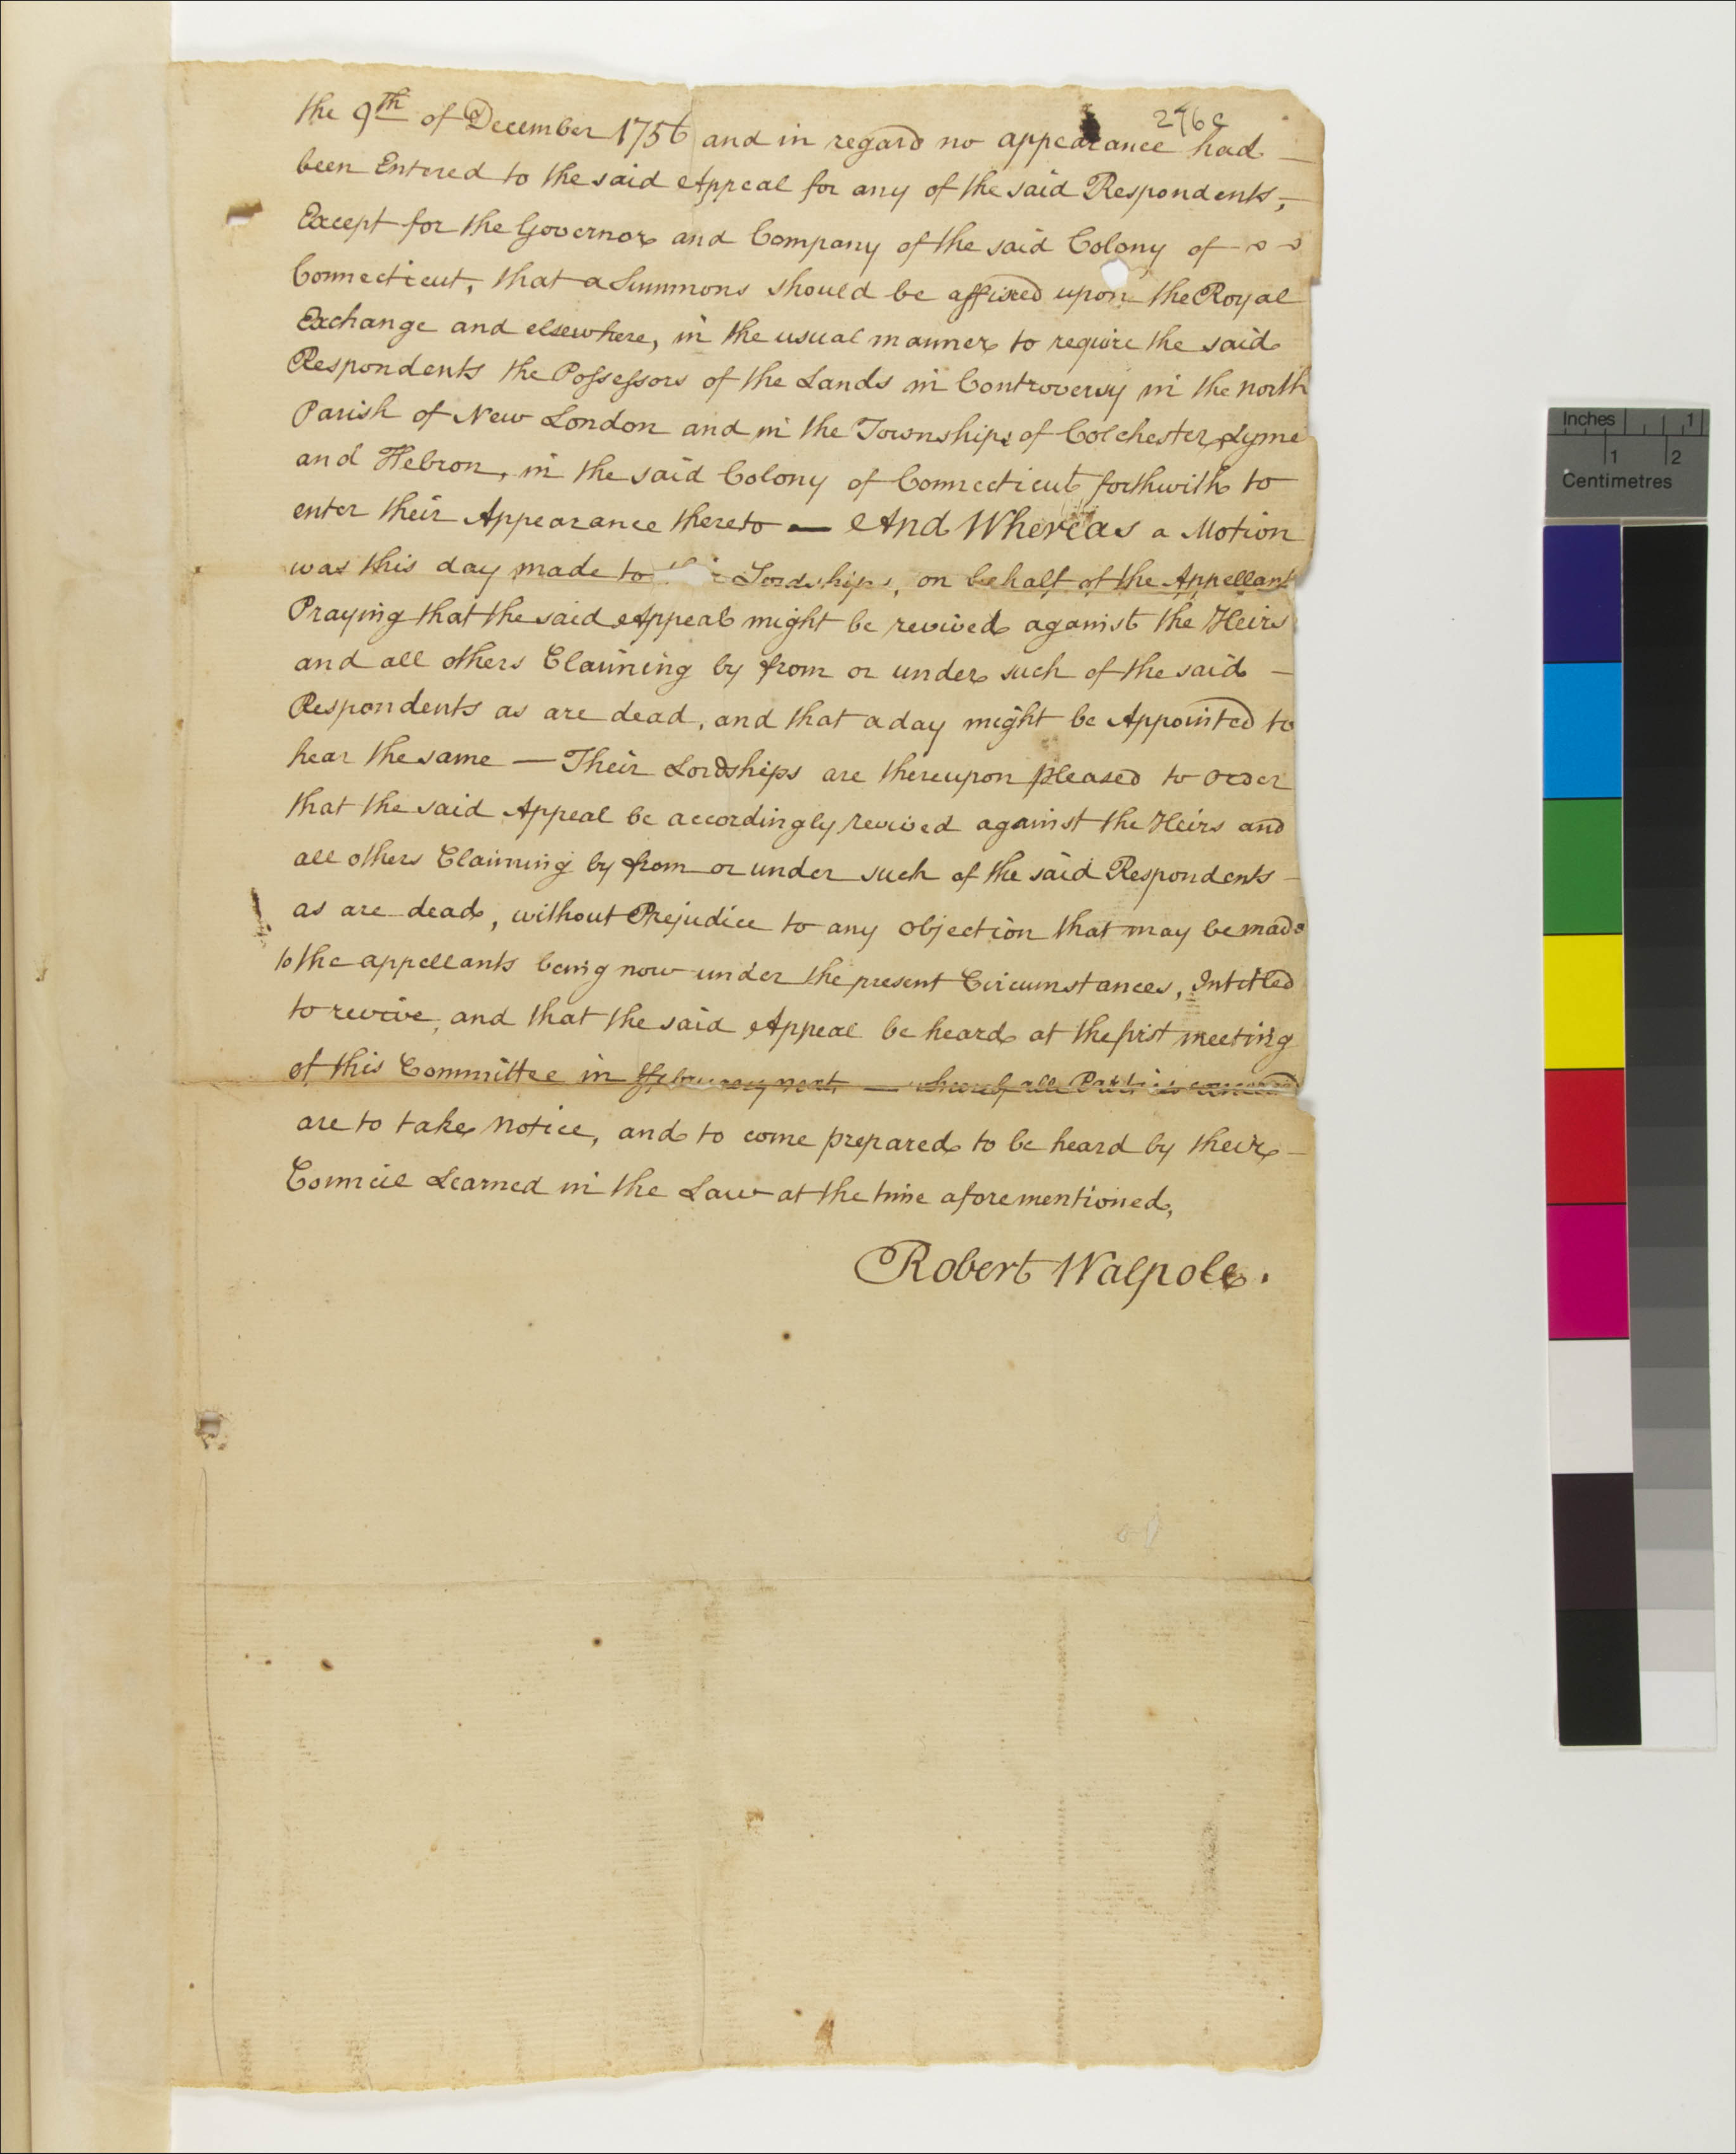 296c
the 9th of December 1756 and in regard no appearance had —
been Entered to the said Appeal for any of the said Respondents, —
Except for the Governor and Company of the said Colony of
Connecticut, that a Summons should be affixed upon the Royal
Exchange and elsewhere, in the usual manner to require the said
Respondents the Possessors of the Lands in Controversy in the north
Parish of New London and in the Townships of Colchester, Lyme
and Hebron, in the said Colony of Connecticut forthwith to
enter their Appearance thereto — And Whereas a Motion
was this day made to Lordships, on behalf of the Appellant
Praying that the said Appeal might be revived against the Heirs
and all others Claiming by from or under such of the said —
Respondents as are dead, and that a day might be Appointed to
hear the same — Their Lordships are thereupon pleased to order
that the said Appeal be accordingly revived against the Heirs and
all others Claiming by from or under such of the said Respondents —
as are dead, without Prejudice to any objection that may be made
to the appellants being now under the present Circumstances, Intitled
to revive, and that the said Appeal be heard at the first meeting
of this Committee in ffebruary next — whereof all Parties concerned
are to take notice, and to come prepared to be heard by their —
Council Learned in the Law at the time aforementioned,
Robert Walpole.
Inches 1
1 2
Centimetres